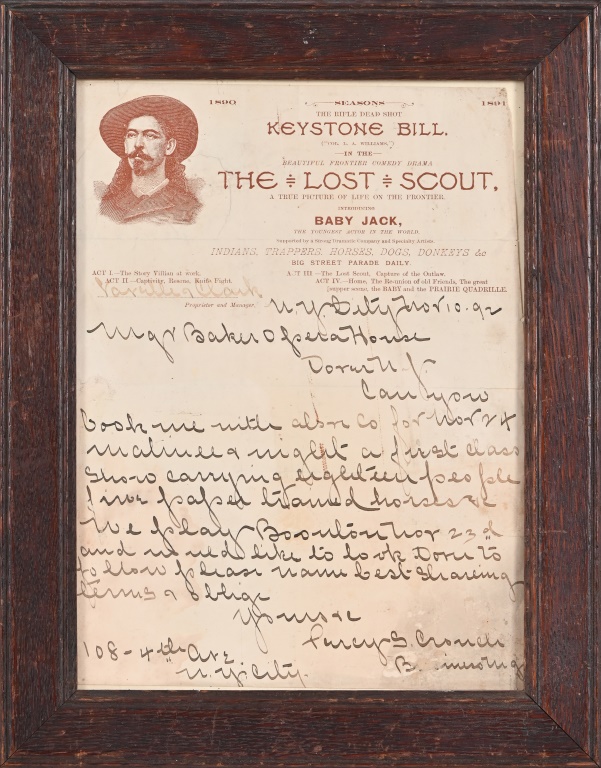 1890 SEASONS 1891
THE RIFLE DEAD SHOT
KEYSTONE BILL.
("COL. L. A. WILLIAMS,")
IN THE
BEAUTIFUL FRONTIER COMEDY DRAMA
THE LOST SCOUT,
A TRUE PICTURE OF LIFE ON THE FRONTIER.
INTRODUCING
BABY JACK,
THE YOUNGEST ACTOR IN THE WORLD.
Supported by a Strong Dramatic Company and Specialty Artists
INDIANS, TRAPPERS, HORSES, DOGS, DONKEYS &c
BIG STREET PARADE DAILY.
ACT I.—The Story Villian at work.
ACT II.—Captivity, Rescue, Knife Fight.
ACT III—The Lost Scout, Capture of the Outlaw.
ACT IV.—Home, The Re-union of old Friends, The great
[supper scene, the BABY and the PRAIRIE QUADRILLE.
Clark
Proprietor and Manager.
N.Y City Nov 10. 92
Mgr Baker Opera House
Dover N J.
Can you
book me with above Co for Nov 24
Matinee & night a first class
Show carrying eighteen people
fine paper trained horses &c.
We play Boonton Nov 23d
and would like to book Dover to
follow please name best sharing
terms & oblige
Yours &c
108-4th Ave Percy S.
N.Y. City.